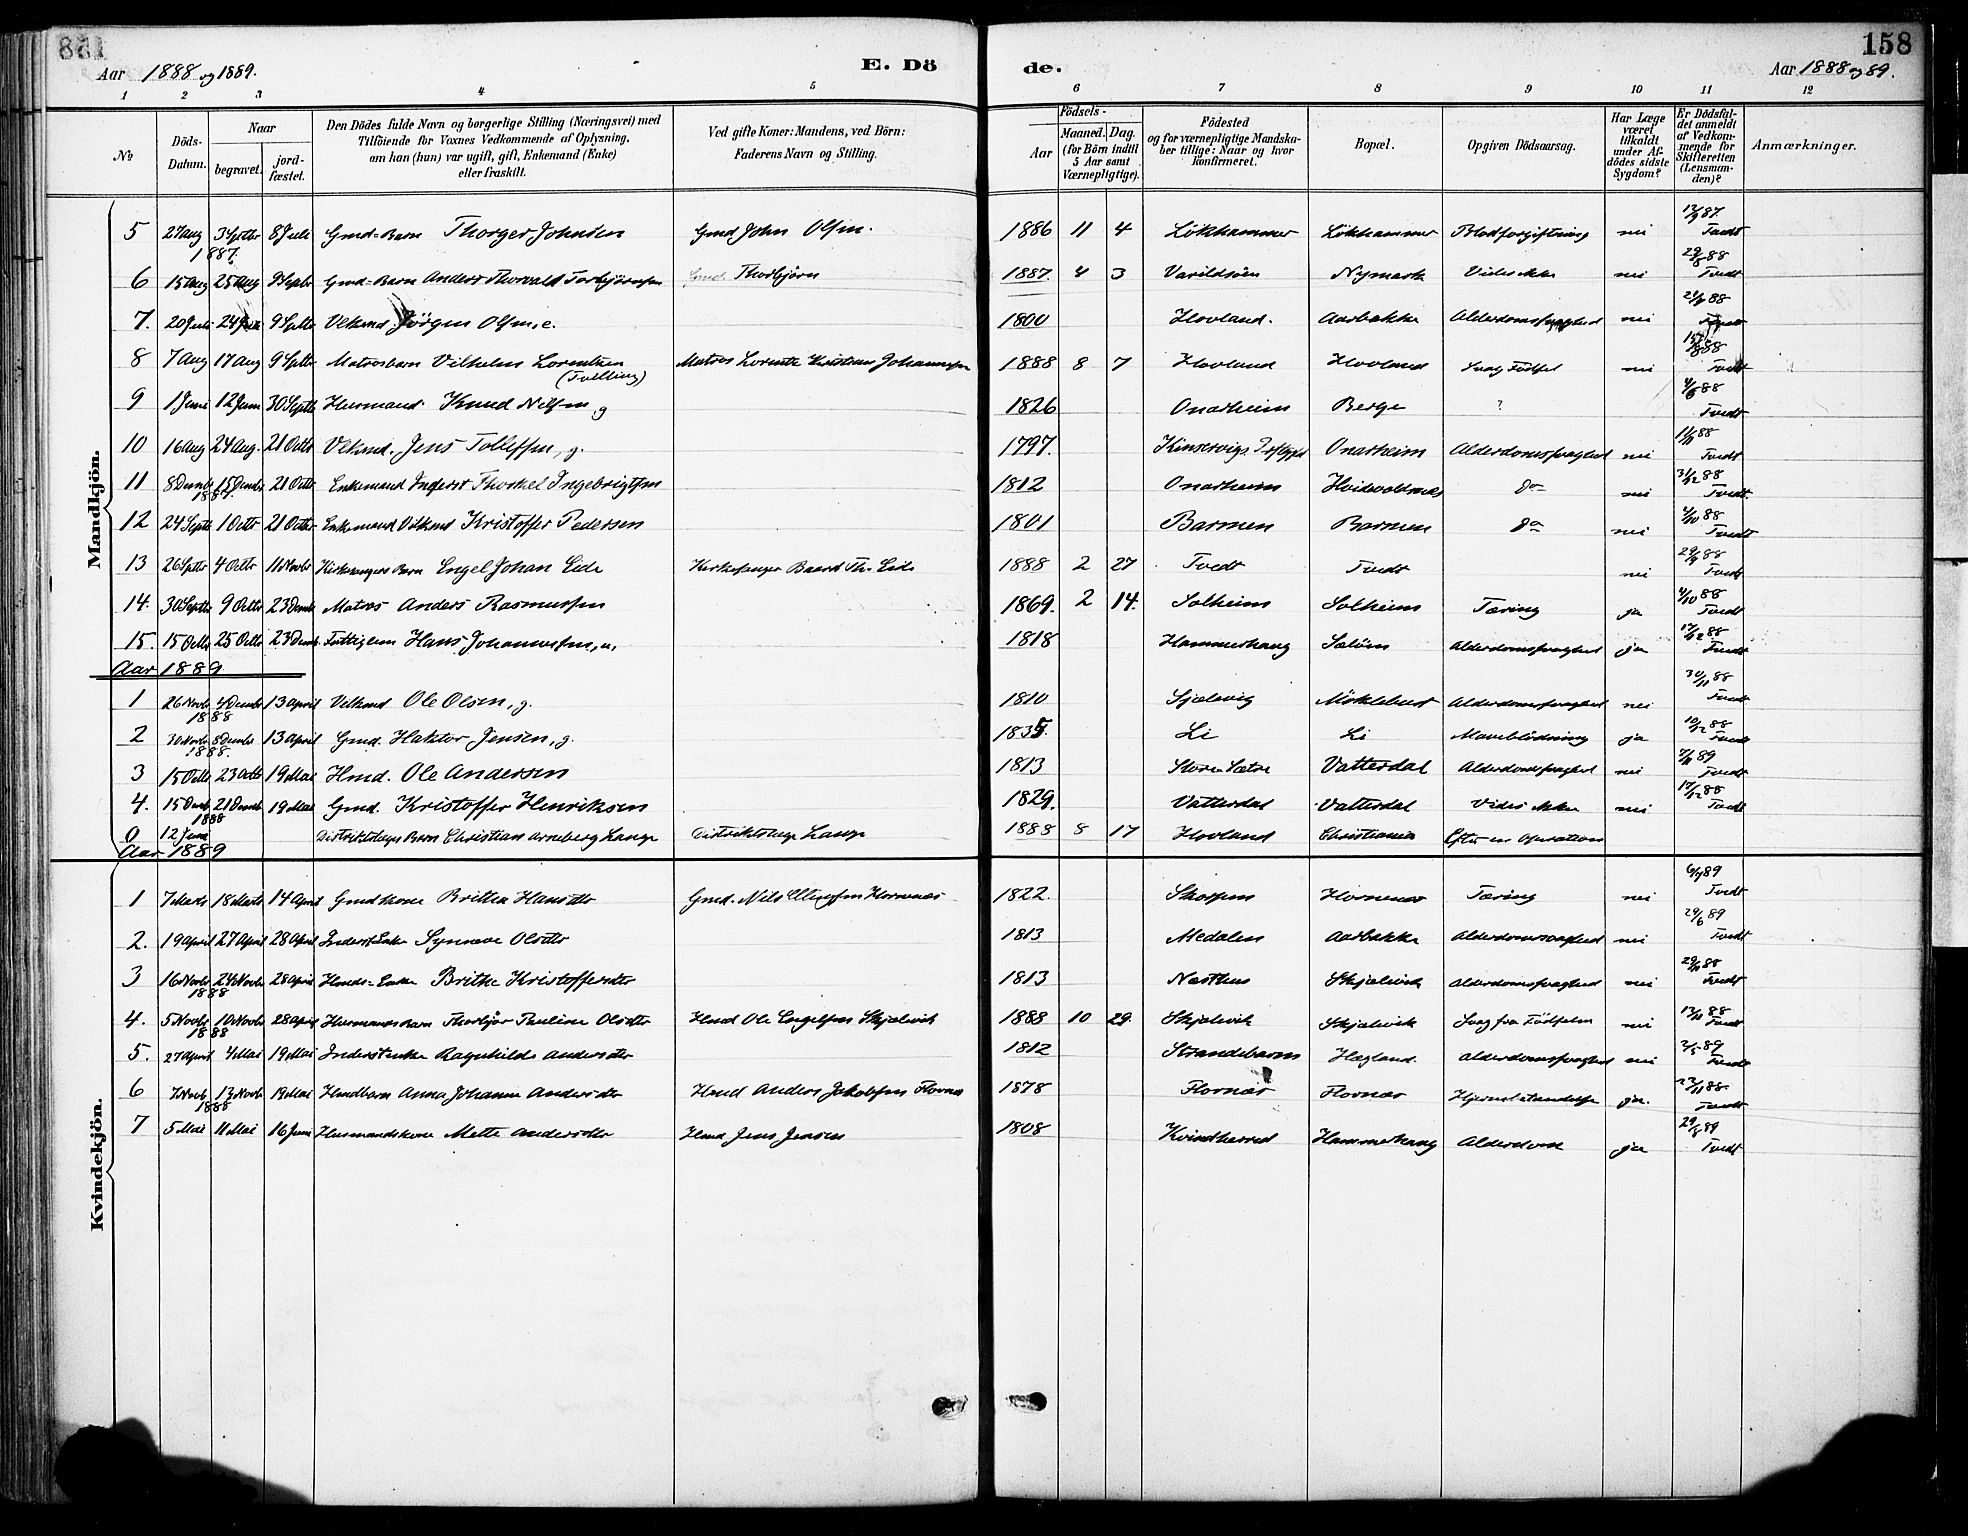 158
Aar 1888 og 1889.
E. Dö
de.
158
Aar 1888 og 89.
1 2 3 4 5 6 7 8 9 10 11 12
No
Döds-Datum.
Naar
begravet.
jord-fæstet.
Den Dödes fulde Navn og borgerlige Stilling (Næringsvei) med
Tilföiende for Voxnes Vedkommende af Oplysning,
om han (hun) var ugift, gift, Enkemand (Enke)
eller fraskilt.
Ved gifte Koner: Mandens, ved Börn:
Faderens Navn og Stilling.
Födsels-
Aar
Maaned. Dag.
(for Börn indtil
5 Aar samt
Værnepligtige).
Födested
og for værnepligtige Mandska-
ber tillige: Naar og hvor
konfirmeret.
Bopæl.
Opgiven Dödsaarsag.
Har Læge
været
tilkaldt
under Af-
dödes sidste
Sygdom?
Er Dödsfal-
det anmeldt
af Vedkom-
mende for
Skifteretten
(Lensman-
den)?
Anmærkninger.
Mandkjön.
5 27 Aug 1887. 3 Septbr 8 Juli Gmd-Barn Thorger Johnsen Gmd John Olsen. 1886 11 4 Lökhammer Lökhammer Blodforgiftning nei 12/9 87. Tvedt
6 15 Aug 25 Aug 9 Septbr Gmd-Barn Anders Thorvald Torbjörnsen Gmd. Thorbjörn 1887 4 3 Varildsöen Nymark Vides ikke nei 29/8 88 Tvedt
7. 20 Juli 24 9 Septbr Vlkmd Jörgen Olsen, e. 1800 Hovland. Aarbakke Alderdomssvaghed nei 88 Tvedt
8 7 Aug 17 Aug 9 Septbr Matrosbarn Vilhelm Lorentzen (Tvilling) Matros Lorentz Kristian Johannessen 1888 8 7 Hovland Hovland Svag Födsel nei 88 Tvedt
9 1 Juni 12 Juni 30 Septbr Husmand Knud Nilsen g 1826 Onarheim Berge ? 88 Tvedt
10 16 Aug 24 Aug. 21 Octbr Vlkmd. Jens Tollefsen, g. 1797. Kinservigs Onarheim Alderdomssvaghed nei 88 Tvedt
11 8 Decmbr 1887. 15 Decmbr 21 Octbr Enkemand Inderst Thorkel Ingebrigtsen 1812 Onarheim Hvidevoldnæs do nei 31/12 88 Tvedt
12 24 Septbr 1 Octbr 21 Octbr Enkemand Vilkmd Kristoffer Pedersen 1801 Barmen Barmen do nei 4/10 88 Tvedt
13 26 Septbr 4 Octbr 11 Novbr Kirkesangers Barn Engel Johan Eide Kirkesanger Baard Th. Eide 1888 2 27 Tvedt Tvedt nei 29/9 88 Tvedt
14. 30 Septbr 9 Octbr 23 Decmbr Matros Anders Rasmussen 1869. 2 14. Solheim Solheim Tæring ja 4/10 88 Tvedt
15. 15 Octbr 25 Octbr 23 Decmb Fattiglem Hans Johannessen, u, 1818 Hammerhaug Sælöen Alderdomssvaghed ja 17/12 88 Tvedt
Aar 1889
1 26 Novbr 1888 4 Decmbr 13 April Vilkmd Ole Olsen, g. 1810 Sjælevig Möklebust Alderdomssvaghed nei 30/11 88 Tvedt
2 30 Novbr 1888. 8 Decmbr 13 April Gmd. Haktor Jensen, g. 1835 Li Li Maveblödning ja 10/12 88 Tvedt
3 15 Octbr 23 Octbr 19 Mai Hmd. Ole Andersen 1813 Store Sætre Vatterdal Alderdomssvaghed nei 89 Tvedt
4. 15 Decmb 1888 21 Decmb 19 Mai Gmd. Kristoffer Henriksen 1829. Vatterdal Vatterdal Vides ikke nei 17/12 88 Tvedt
0 12 Juni Distriktslæges Barn Christian Arneberg Lange Distriktslæge Lange 1888 8 17 Hovland Christiania Efter en Operation
Aar 1889
Kvindekjön.
1 7 Marts 18 Marts 14 April Gmdkone Britha Hansdtr Gmd. Nils Ellingsen Hornenæs 1822. Skorpen Hornenæs Tæring nei 89 Tvedt
2. 19 April 27 April 28 April Inderst Enke Synneve Olsdtr 1813 Medalen Aarbakke Alderdomssvaghed nei 29/6 89 Tvedt
3 16 Novbr 1888 24 Novbr 28 April Hmds-Enke Brithe Kristoffersdtr 1813 Næsthus Skjælevik Alderdomssvaghed nei 29/11 88 Tvedt
4. 5 Novbr 1888 10 Novbr 28 April Husmands Barn Thorbjör Pauline Olsdtr Hmd Ole Engelsen Skjælevik 1888 10 29 Skjælevik Skjælevik Svag fra Födselen nei 13/11 88 Tvedt
5. 27 April 4 Mai 19 Mai Inderstenke Ragnhilde Andersdtr 1812 Strandebarm Hægland Alderdomssvaghed nei 2/5 89 Tvedt
6 7 Novbr 1888 13 Novbr 19 Mai Hmdbarn Anna Johanne Andersdtr Hmd Anders Jakobsen Flornæs 1878 Flornæs Flornæs Hjernebetændelse ja. 23/11 88 Tvedt
7 5 Mai 11 Mai 16 Juni Husmandskone Mette Andersdtr Hmd Jens Jensen 1808 Kvindherred Hammerhaug Alderdom ja 29/8 89 Tvedt